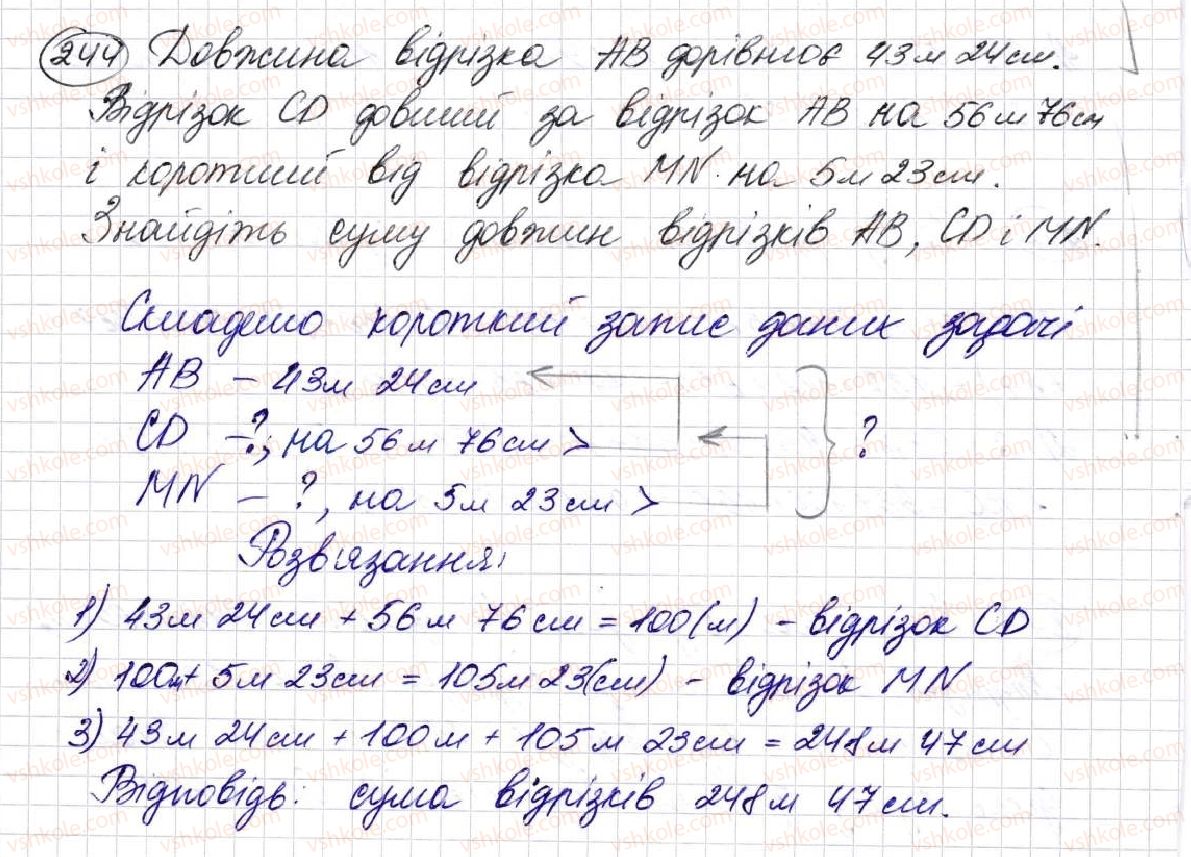 244 Довжина відрізка AB дорівнює 43м 24см.
Відрізок CD довший за відрізок AB на 56м 76см
і коротший від відрізка MN на 5м 23см.
Знайдіть суму довжин відрізків AB, CD і MN.
Складемо короткий запис даних задачі
AB – 43м 24см
CD –?; на 56м 76см > ?
MN – ?, на 5м 23см >
Розв'язання:
1) 43м 24см + 56м 76см = 100(м) – відрізок CD
2) 100м + 5м 23см = 105м 23(см) – відрізок MN
3) 43м 24см + 100м + 105м 23см = 248м 47см
Відповідь: сума відрізків 248м 47см.